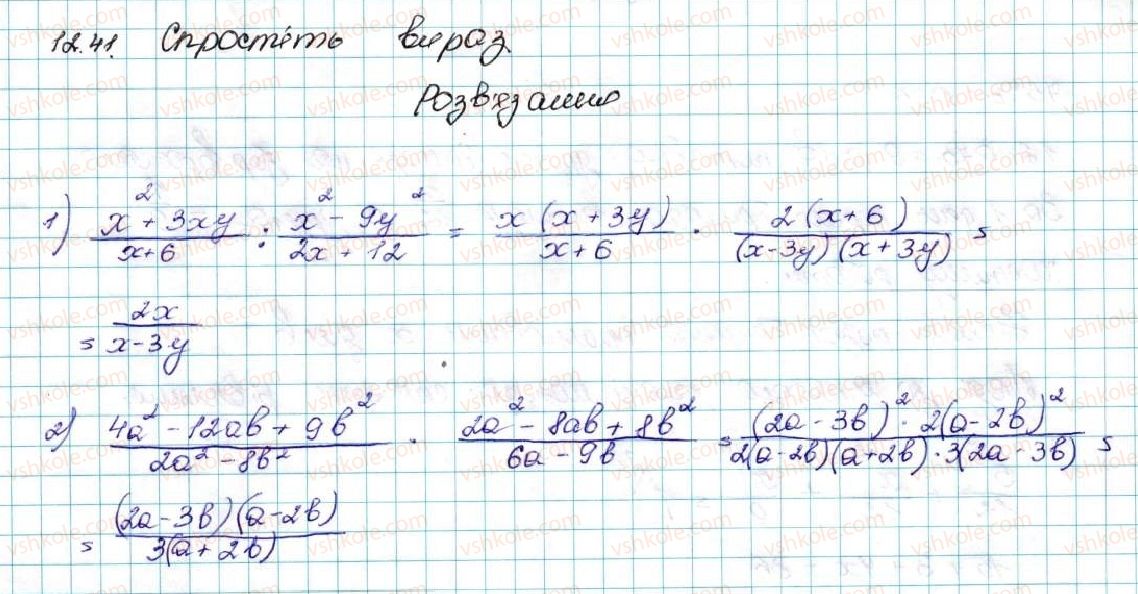 12.41. Спростіть вираз.
Розв'язання
1) (x² + 3xy)/(x+6) : (x² - 9y²)/(2x + 12) = (x(x + 3y))/(x+6) · (2(x+6))/((x-3y)(x+3y)) =
= (2x)/(x-3y)
2) (4a² - 12ab + 9b²)/(2a² - 8b²) · (2a² - 8ab + 8b²)/(6a - 9b) = ((2a - 3b)² · 2(a - 2b)²)/(2(a-2b)(a+2b) · 3(2a-3b)) =
= ((2a-3b)(a-2b))/(3(a+2b))